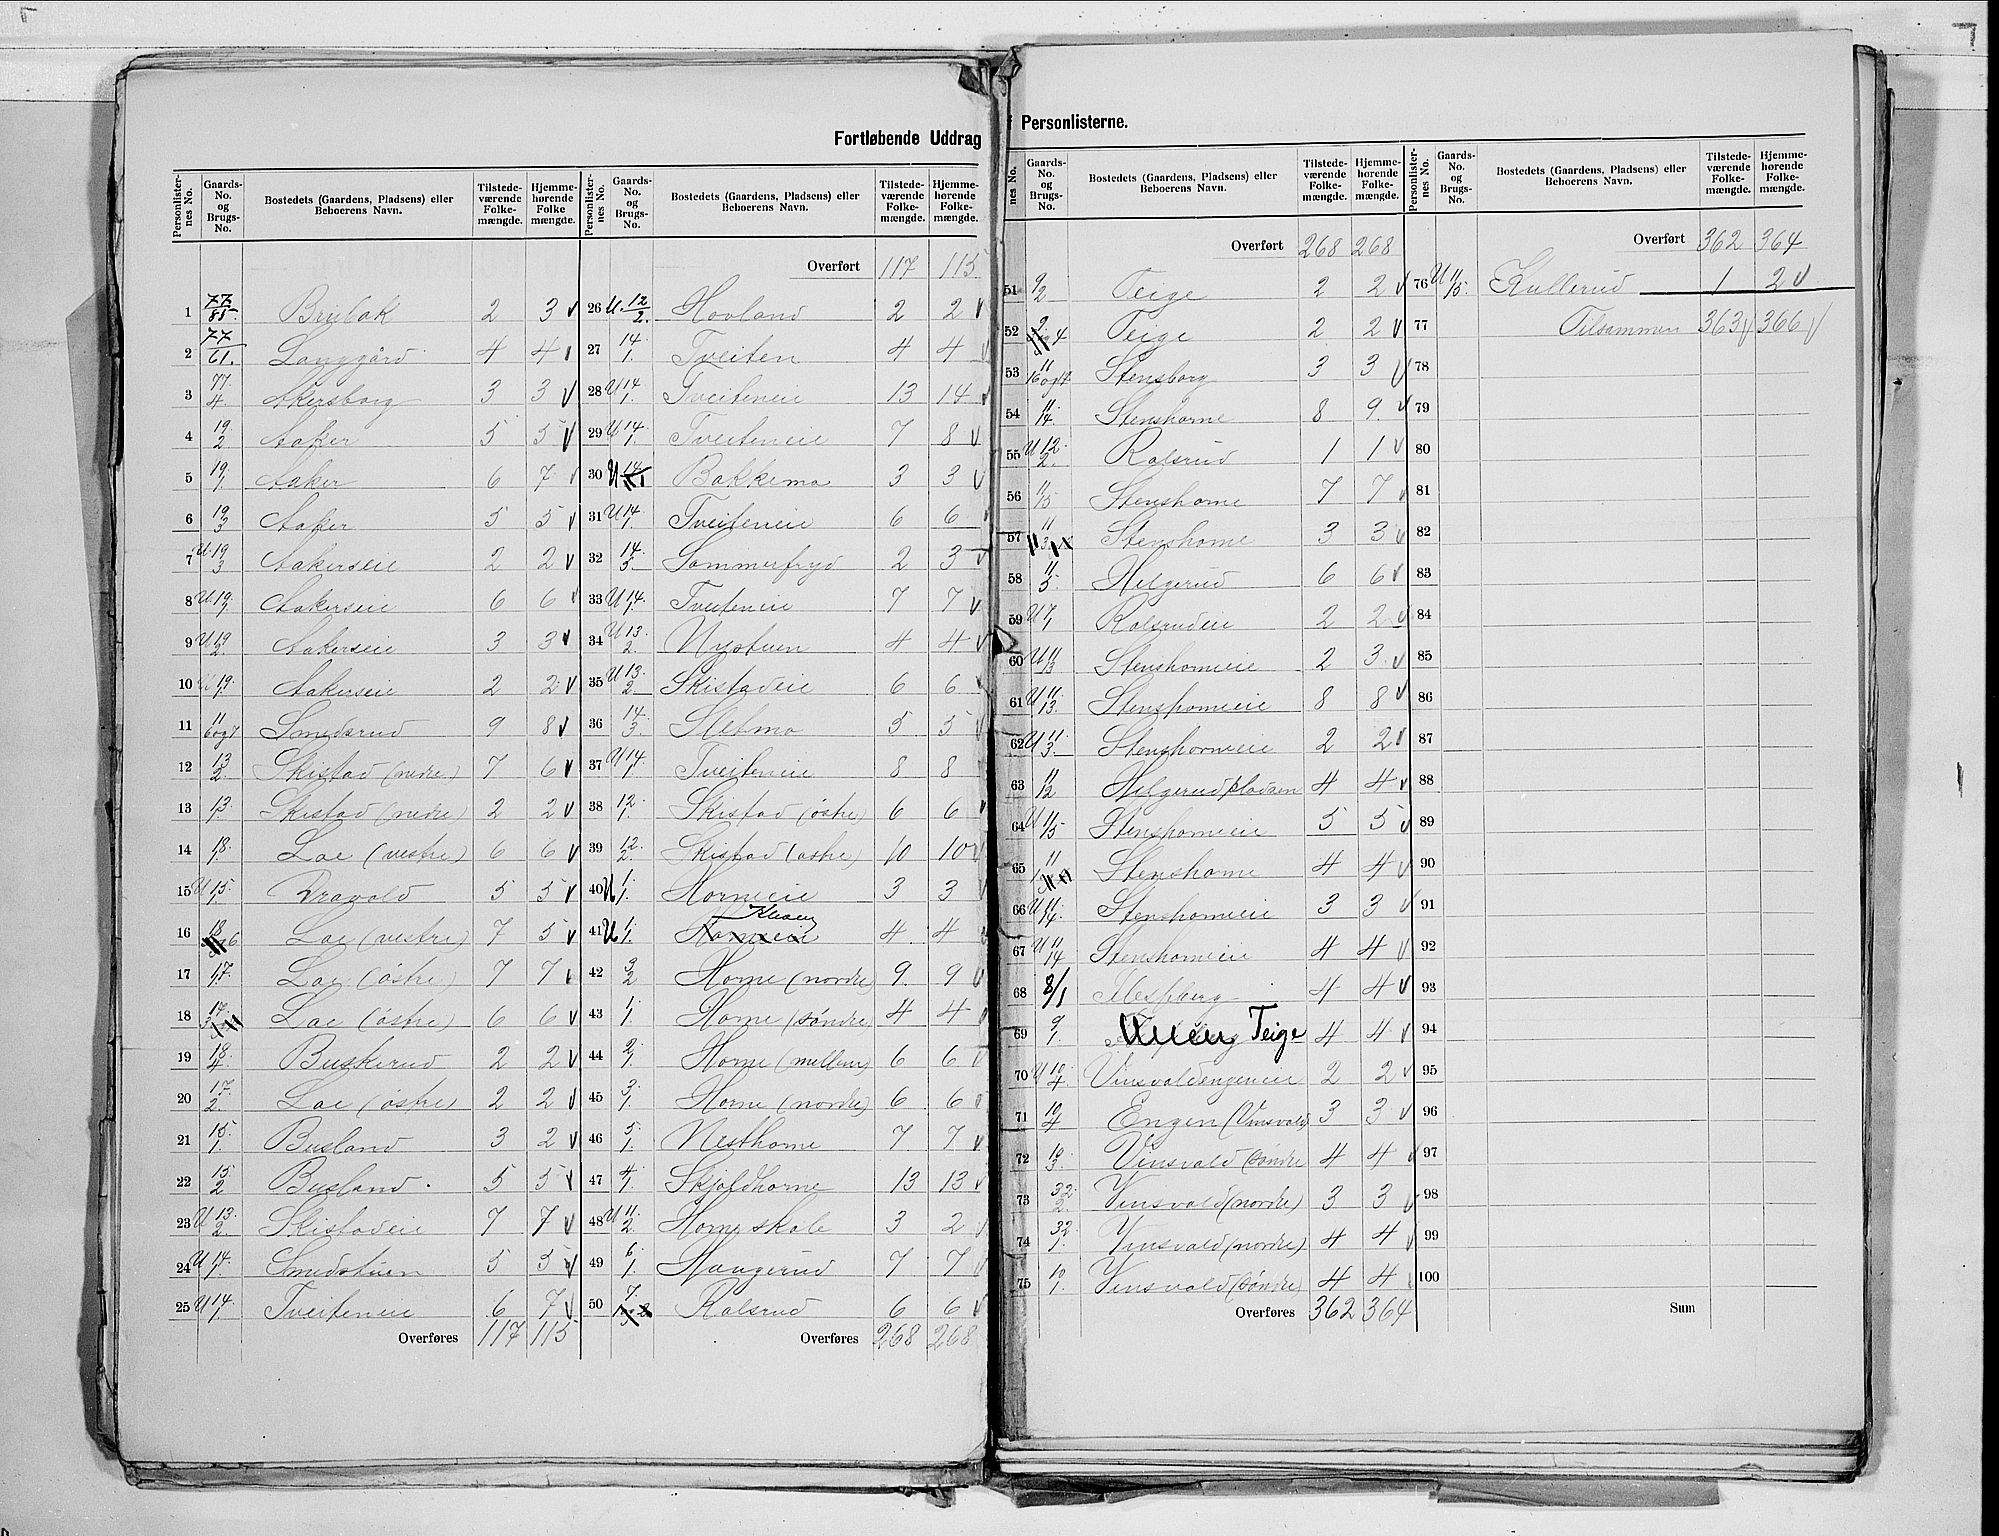 Fortløbende Uddrag
f Personlisterne.
Personlister-nes No. | Gaards-No. og Brugs-No. | Bostedets (Gaardens, Pladsens) eller Beboerens Navn. | Tilstede-værende Folke-mængde. | Hjemme-hørende Folke mængde.
1 77/85 Brubak 2 3 v
2 77/61. Langgård 4 4 v
3 77/4 Akersborg 3 3 v
4 19/2 Aaker 5 5 v
5 19/1 Aaker 6 7 v
6 19/3 Aaker 5 5 v
7 U 19/3 Aakerseie 2 2 v
8 U 19/1 Aakerseie 6 6 v
9 U 19/2 Aakerseie 3 3 v
10 U 19/1 Aakerseie 2 2 v
11 11/6 og 7 Smedsrud 9 8 v
12 13/2 Skistad (nedre) 7 6 v
13 13/1 Skistad (nedre) 2 2 v
14 18/1 Loe (vestre) 6 6 v
15 U 15/1 Dravold 5 5 v
16 18/ 6 Loe (vestre) 7 5 v
17 17/1 Loe (östre) 7 7 v
18 17/3 Loe (östre) 6 6 v
19 18/4 Buskerud 2 2 v
20 17/2 Loe (östre) 2 2 v
21 15/1 Busland 3 2 v
22 15/2 Busland 5 5 v
23 U 13/2 Skistadeie 7 7 v
24 U 14/1 Smedstuen 5 5 v
25 U 14/1 Tveiteneie 6 7 v
Overføres 117 115
Personlister-nes No. | Gaards-No. og Brugs-No. | Bostedets (Gaardens, Pladsens) eller Beboerens Navn. | Tilstede-værende Folke-mængde. | Hjemme-hørende Folke-mængde.
Overført 117 115
26 U 12/2. Hovland 2 2 v
27 14/1. Tveiten 4 4 v
28 U 14/1. Tveiteneie 13 14 v
29 U 14/1. Tveiteneie 7 8 v
30 U 14/1 Bakkemo 3 3 v
31 U 14/1. Tveiteneie 6 6 v
32 14/5. Sommerfryd 2 3 v
33 U 14/1. Tveiteneie 7 7 v
34 U 13/2 Nystuen 4 4 v
35 U 13/2 Skistadeie 6 6 v
36 14/3 Sletmo 5 5 v
37 U 14/1 Tveiteneie 8 8 v
38 12/1. Skistad (östre) 6 6 v
39 12/2. Skistad (östre) 10 10 v
40 U 1/1. Horneeie 3 3 v
41 U 1/1. Horneeie 4 4 v
42 3/2 Horne (nordre) 9. 9 v
43 1/1 Horne (söndre) 4 4 v
44 2/1 Horne (mellem) 6 6 v
45 3/1 Horne (nordre) 6 6 v
46 5/1 Nesthorne 7 7 v
47 4/1 Skjoldhorne 13 13 v
48 U 11/2 Horne skole 3 2 v
49 6/1 Haugerud 7 7 v
50 7/ Rolsrud 6 6 v
Overføres 268 268
nes No. | Gaards-No. og Brugs-No. | Bostedets (Gaardens, Pladsens) eller Beboerens Navn. | Tilstede-værende Folke-mængde. | Hjemme-hørende Folke-mængde.
Overført 268 268
51 9/2 Teige 2 2 v
52 9/ 4 Teige 2 2 v
53 11/16 og 17 Stensborg 3 3 v
54 11/14. Stenshorne 8 9 v
55 U 12/2. Rolsrud 1 1 v
56 11/15 Stenshorne 7 7 v
57 11/3 Stenshorne 3 3 v
58 11/5 Helgerud 6 6 v
59 U 7/1 Rolsrudeie 2 2 v
60 U 11/3 Stenshorneie 2 3 v
61 U 11/13. Stenshorneie 8 8 v
62 U 11/3. Stenshorneie 2 2 v
63 11/12 Helgerudpladsen 4 4 v
64 U 11/15 Stenshorneie 5 5 v
65 11/ Stenshorne 4 4 v
66 U 11/14. Stenshorneie 3 3 v
67 U 11/14 Stenshorneie 4 4 v
68 8/1 4 4 v
69 9/1 Teige 4 4 v
70 U 10/4 Vinsvaldengeneie 2 2 v
71 10/4 Engen (Vinsvald) 3 3 v
72 10/3. Vinsvald (söndre 4 4 v
73 32/2. Vinsvald (nordre) 3 3 v
74 32/1. Vinsvald (nordre) 4 4 v
75 10/1 Vinsvald (söndre) 4 4 v
Overføres 362 364
Personlister-nes No. | Gaards-No. og Brugs-No. | Bostedets (Gaardens, Pladsens) eller Beboerens Navn. | Tilstede-værende Folke-mængde. | Hjemme-hørende Folke-mængde.
Overført 362 364
76 U 11/15. Kullerud 1 2 v
77 Tilsammen 363 v 366 v
78
79
80
81
82
83
84
85
86
87
88
89
90
91
92
93
94
95
96
97
98
99
100
Sum